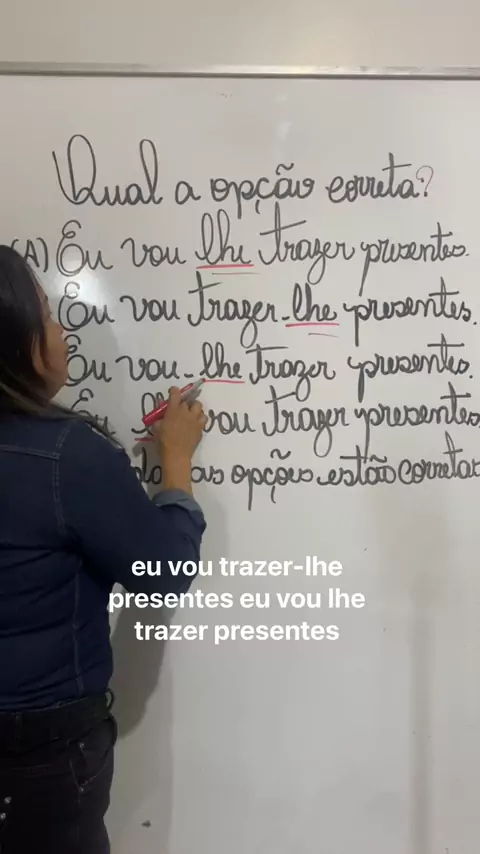 Qual a opção correta?
(A) Eu vou lhe trazer presentes.
Eu vou trazer-lhe presentes.
Eu vou-lhe trazer presentes.
Eu vou trazer presentes
as opções estão corretas
eu vou trazer-lhe
presentes eu vou lhe
trazer presentes